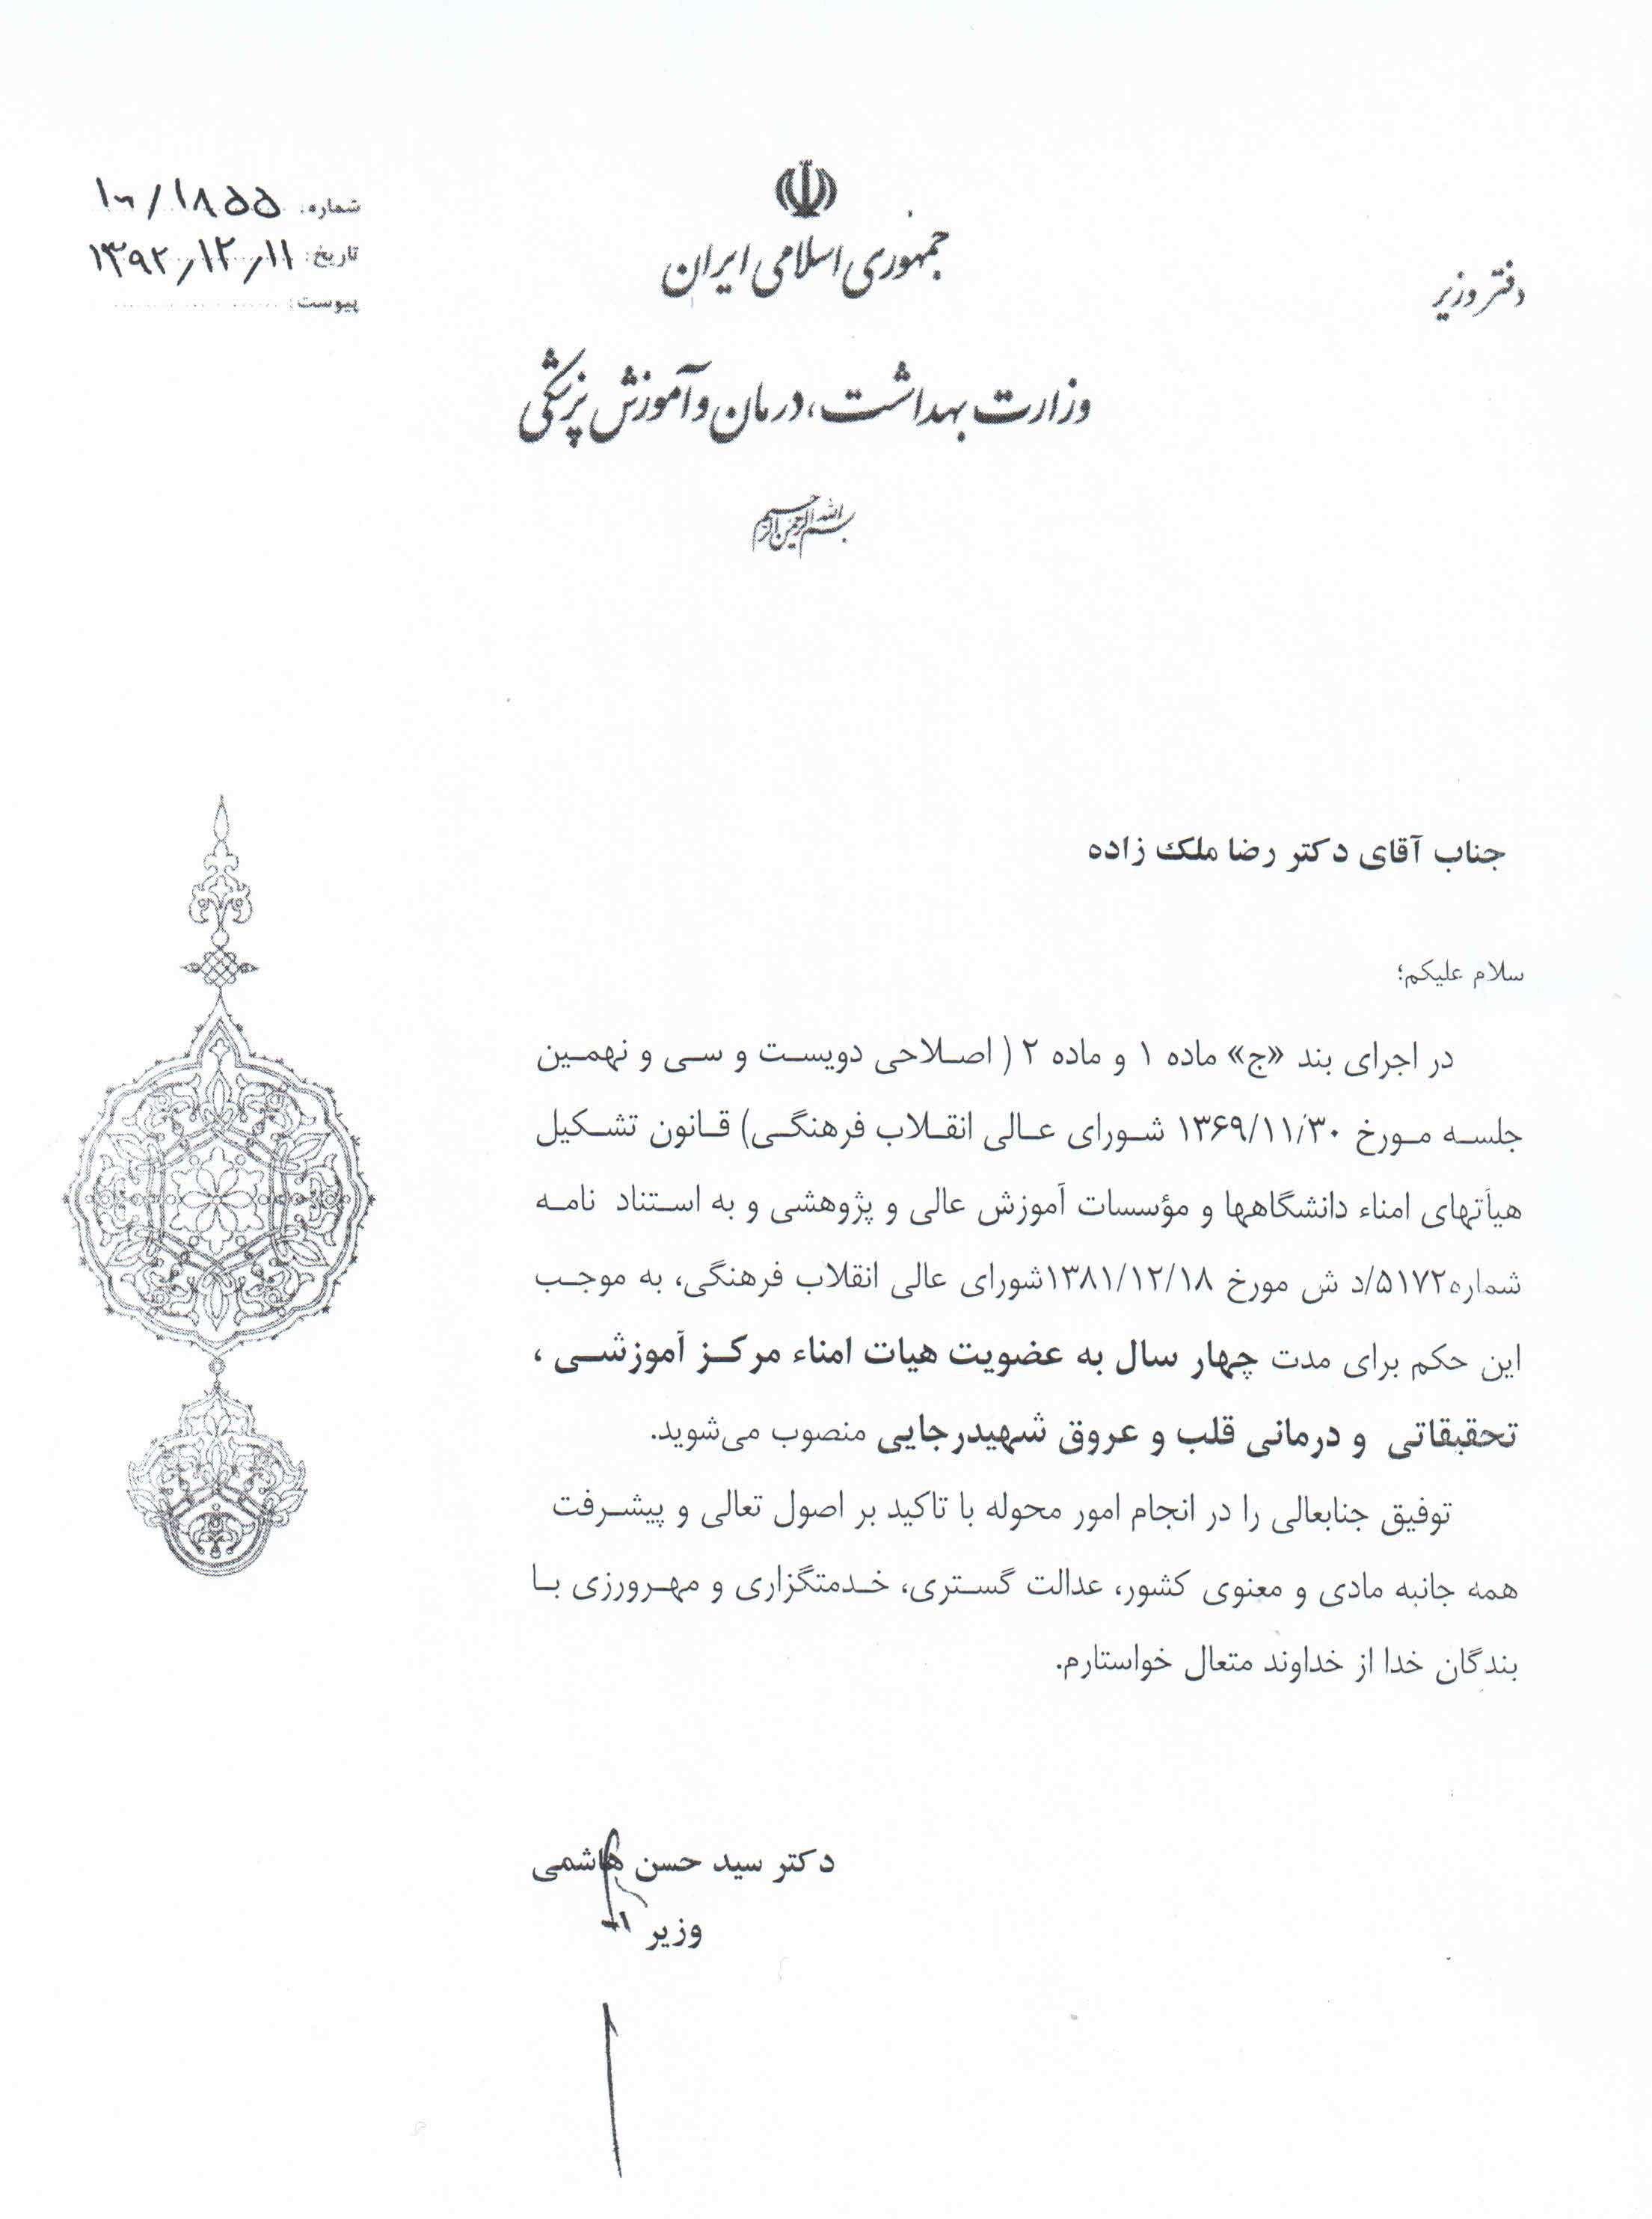 جمهوری اسلامی ایران
وزارت بهداشت، درمان و آموزش پزشکی
بسم الله الرحمن الرحیم
دفتر وزیر
شماره: ۱۸۵۵/
تاریخ: ۱۳۹۲/۱۲/۱۱
پیوست:
جناب آقای دکتر رضا ملک زاده
سلام علیکم؛
در اجرای بند «ج» ماده ۱ و ماده ۲ ( اصلاحی دویست و سی و نهمین
جلسه مورخ ۱۳۶۹/۱۱/۳۰ شورای عالی انقلاب فرهنگی) قانون تشکیل
هیأتهای امناء دانشگاهها و مؤسسات آموزش عالی و پژوهشی و به استناد نامه
شماره۵۱۷۲/د ش مورخ ۱۳۸۱/۱۲/۱۸شورای عالی انقلاب فرهنگی، به موجب
این حکم برای مدت چهار سال به عضویت هیات امناء مرکز آموزشی ،
تحقیقاتی و درمانی قلب و عروق شهیدرجایی منصوب می‌شوید.
توفیق جنابعالی را در انجام امور محوله با تاکید بر اصول تعالی و پیشرفت
همه جانبه مادی و معنوی کشور، عدالت گستری، خدمتگزاری و مهرورزی با
بندگان خدا از خداوند متعال خواستارم.
دکتر سید حسن هاشمی
وزیر